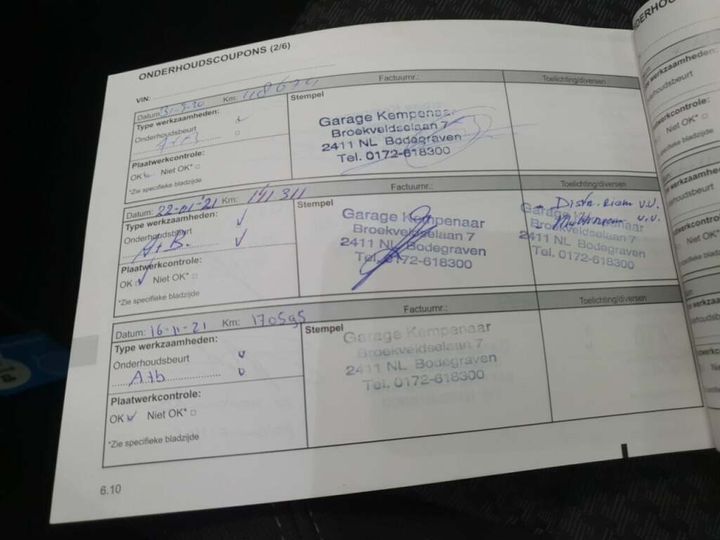 ONDERHOUDSCOUPONS (2/6)
VIN:
Datum: 31-3-20 Km: 118674
Factuurnr.:
Toelichting/diversen
Type werkzaamheden:
Onderhoudsbeurt
Stempel
Garage Kempenaar
Broekveldselaan 7
2411 NL Bodegraven
Tel. 0172-618300
Plaatwerkcontrole:
OK Niet OK*
*Zie specifieke bladzijde
Datum: 22-01-21 Km: 141 311
Factuurnr.:
Toelichting/diversen
Type werkzaamheden:
Onderhoudsbeurt
A+B.
Stempel
Garage Kempenaar
Broekveldselaan 7
2411 NL Bodegraven
Tel. 0172-618300
- Distr. Riem v.v.
- Multiriem v.v.
Garage Kempenaar
Broekveldselaan 7
2411 NL Bodegraven
Tel. 0172-618300
Plaatwerkcontrole:
OK Niet OK*
*Zie specifieke bladzijde
Datum: 16-11-21 Km: 170595
Factuurnr.:
Toelichting/diversen
Type werkzaamheden:
Onderhoudsbeurt
A+b
Stempel
Garage Kempenaar
Broekveldselaan 7
2411 NL Bodegraven
Tel. 0172-618300
Plaatwerkcontrole:
OK Niet OK*
*Zie specifieke bladzijde
6.10